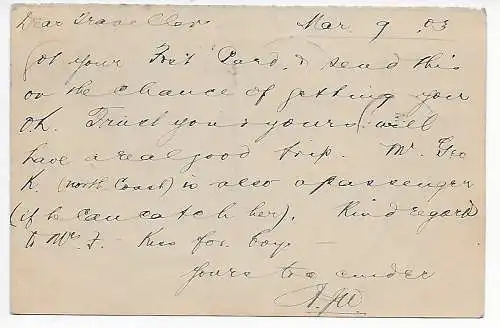 Dear Traveller Mar. 9 03
Got your Post Card, & send this
on the chance of getting you
O.K. Trust you & yours will
have a real good trip. Mr. Geo
K. (north Coast) is also a passenger
(if he can catch her). Kind regards
to Mrs F- Kiss for boys -
Yours to a cinder